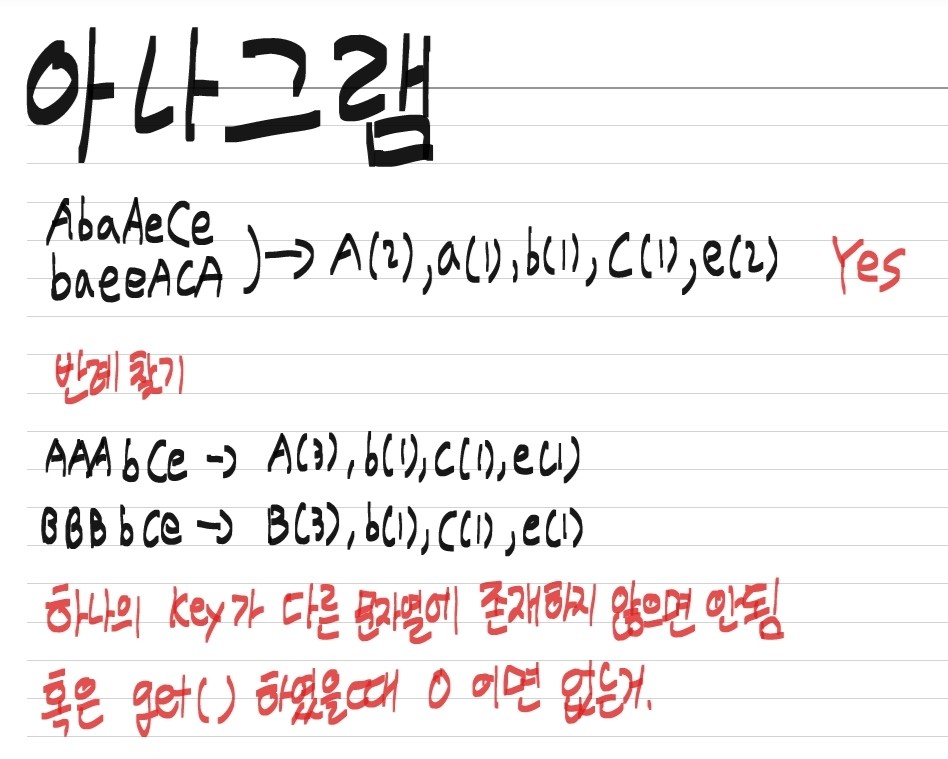 아나그램
AbaAeCe
baeeACA
)→ A(2), a(1), b(1), C(1), e(2) Yes
반례 찾기
AAAbCe → A(3), b(1), C(1), e(1)
BBBbCe → B(3), b(1), C(1), e(1)
하나의 Key가 다른 문자열에 존재하지 않으면 안됨
혹은 get() 하였을때 0 이면 없는거.